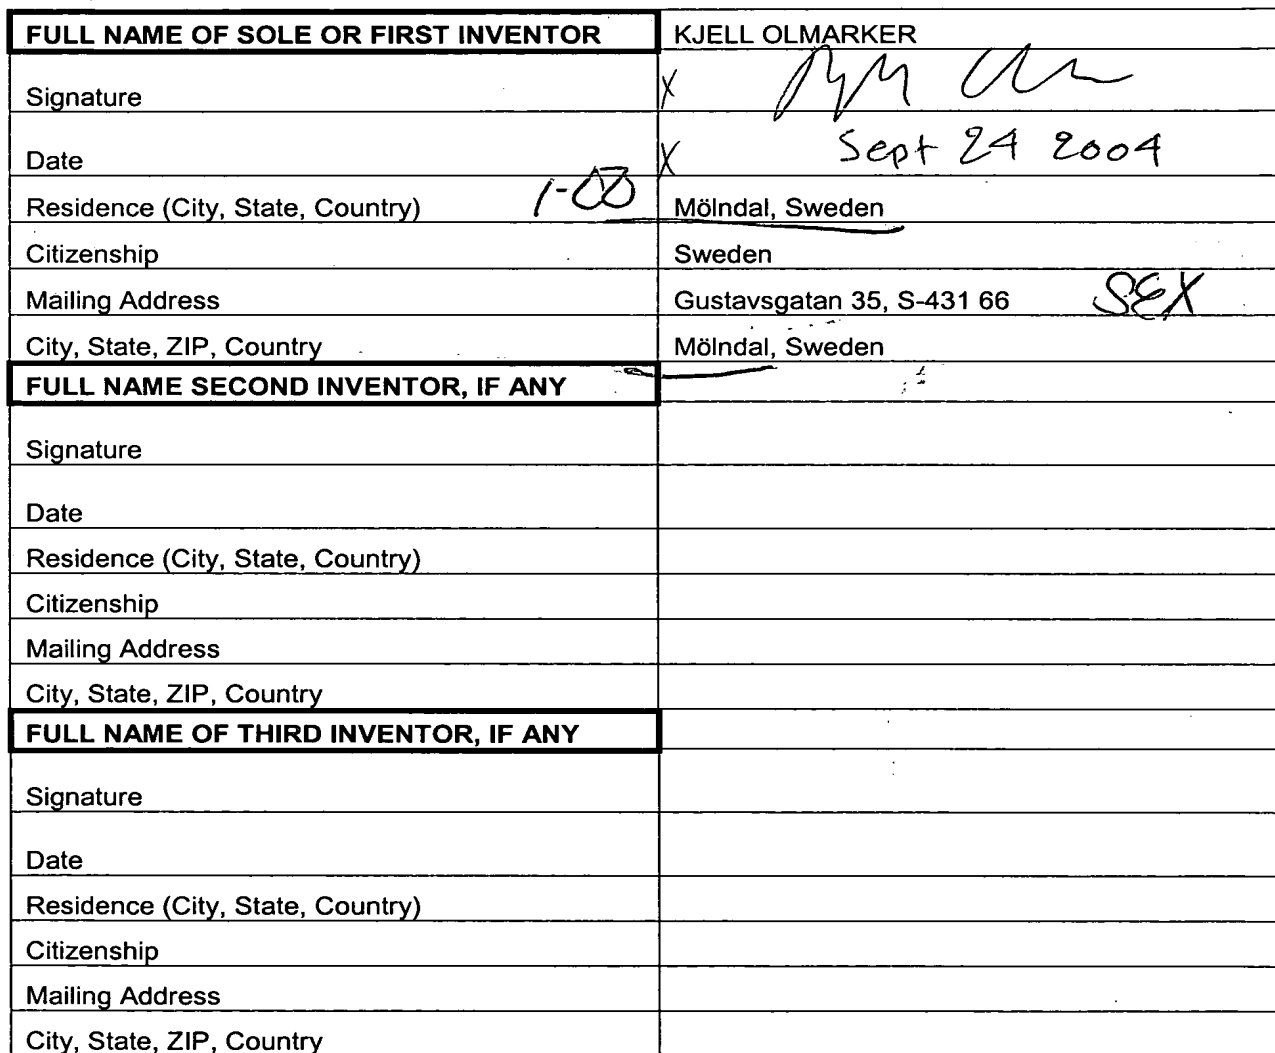 FULL NAME OF SOLE OR FIRST INVENTOR KJELL OLMARKER
Signature X
Date X Sept 24 2004
Residence (City, State, Country) 1-00 Mölndal, Sweden
Citizenship Sweden
Mailing Address Gustavsgatan 35, S-431 66 SEX
City, State, ZIP, Country Mölndal, Sweden
FULL NAME SECOND INVENTOR, IF ANY
Signature
Date
Residence (City, State, Country)
Citizenship
Mailing Address
City, State, ZIP, Country
FULL NAME OF THIRD INVENTOR, IF ANY
Signature
Date
Residence (City, State, Country)
Citizenship
Mailing Address
City, State, ZIP, Country